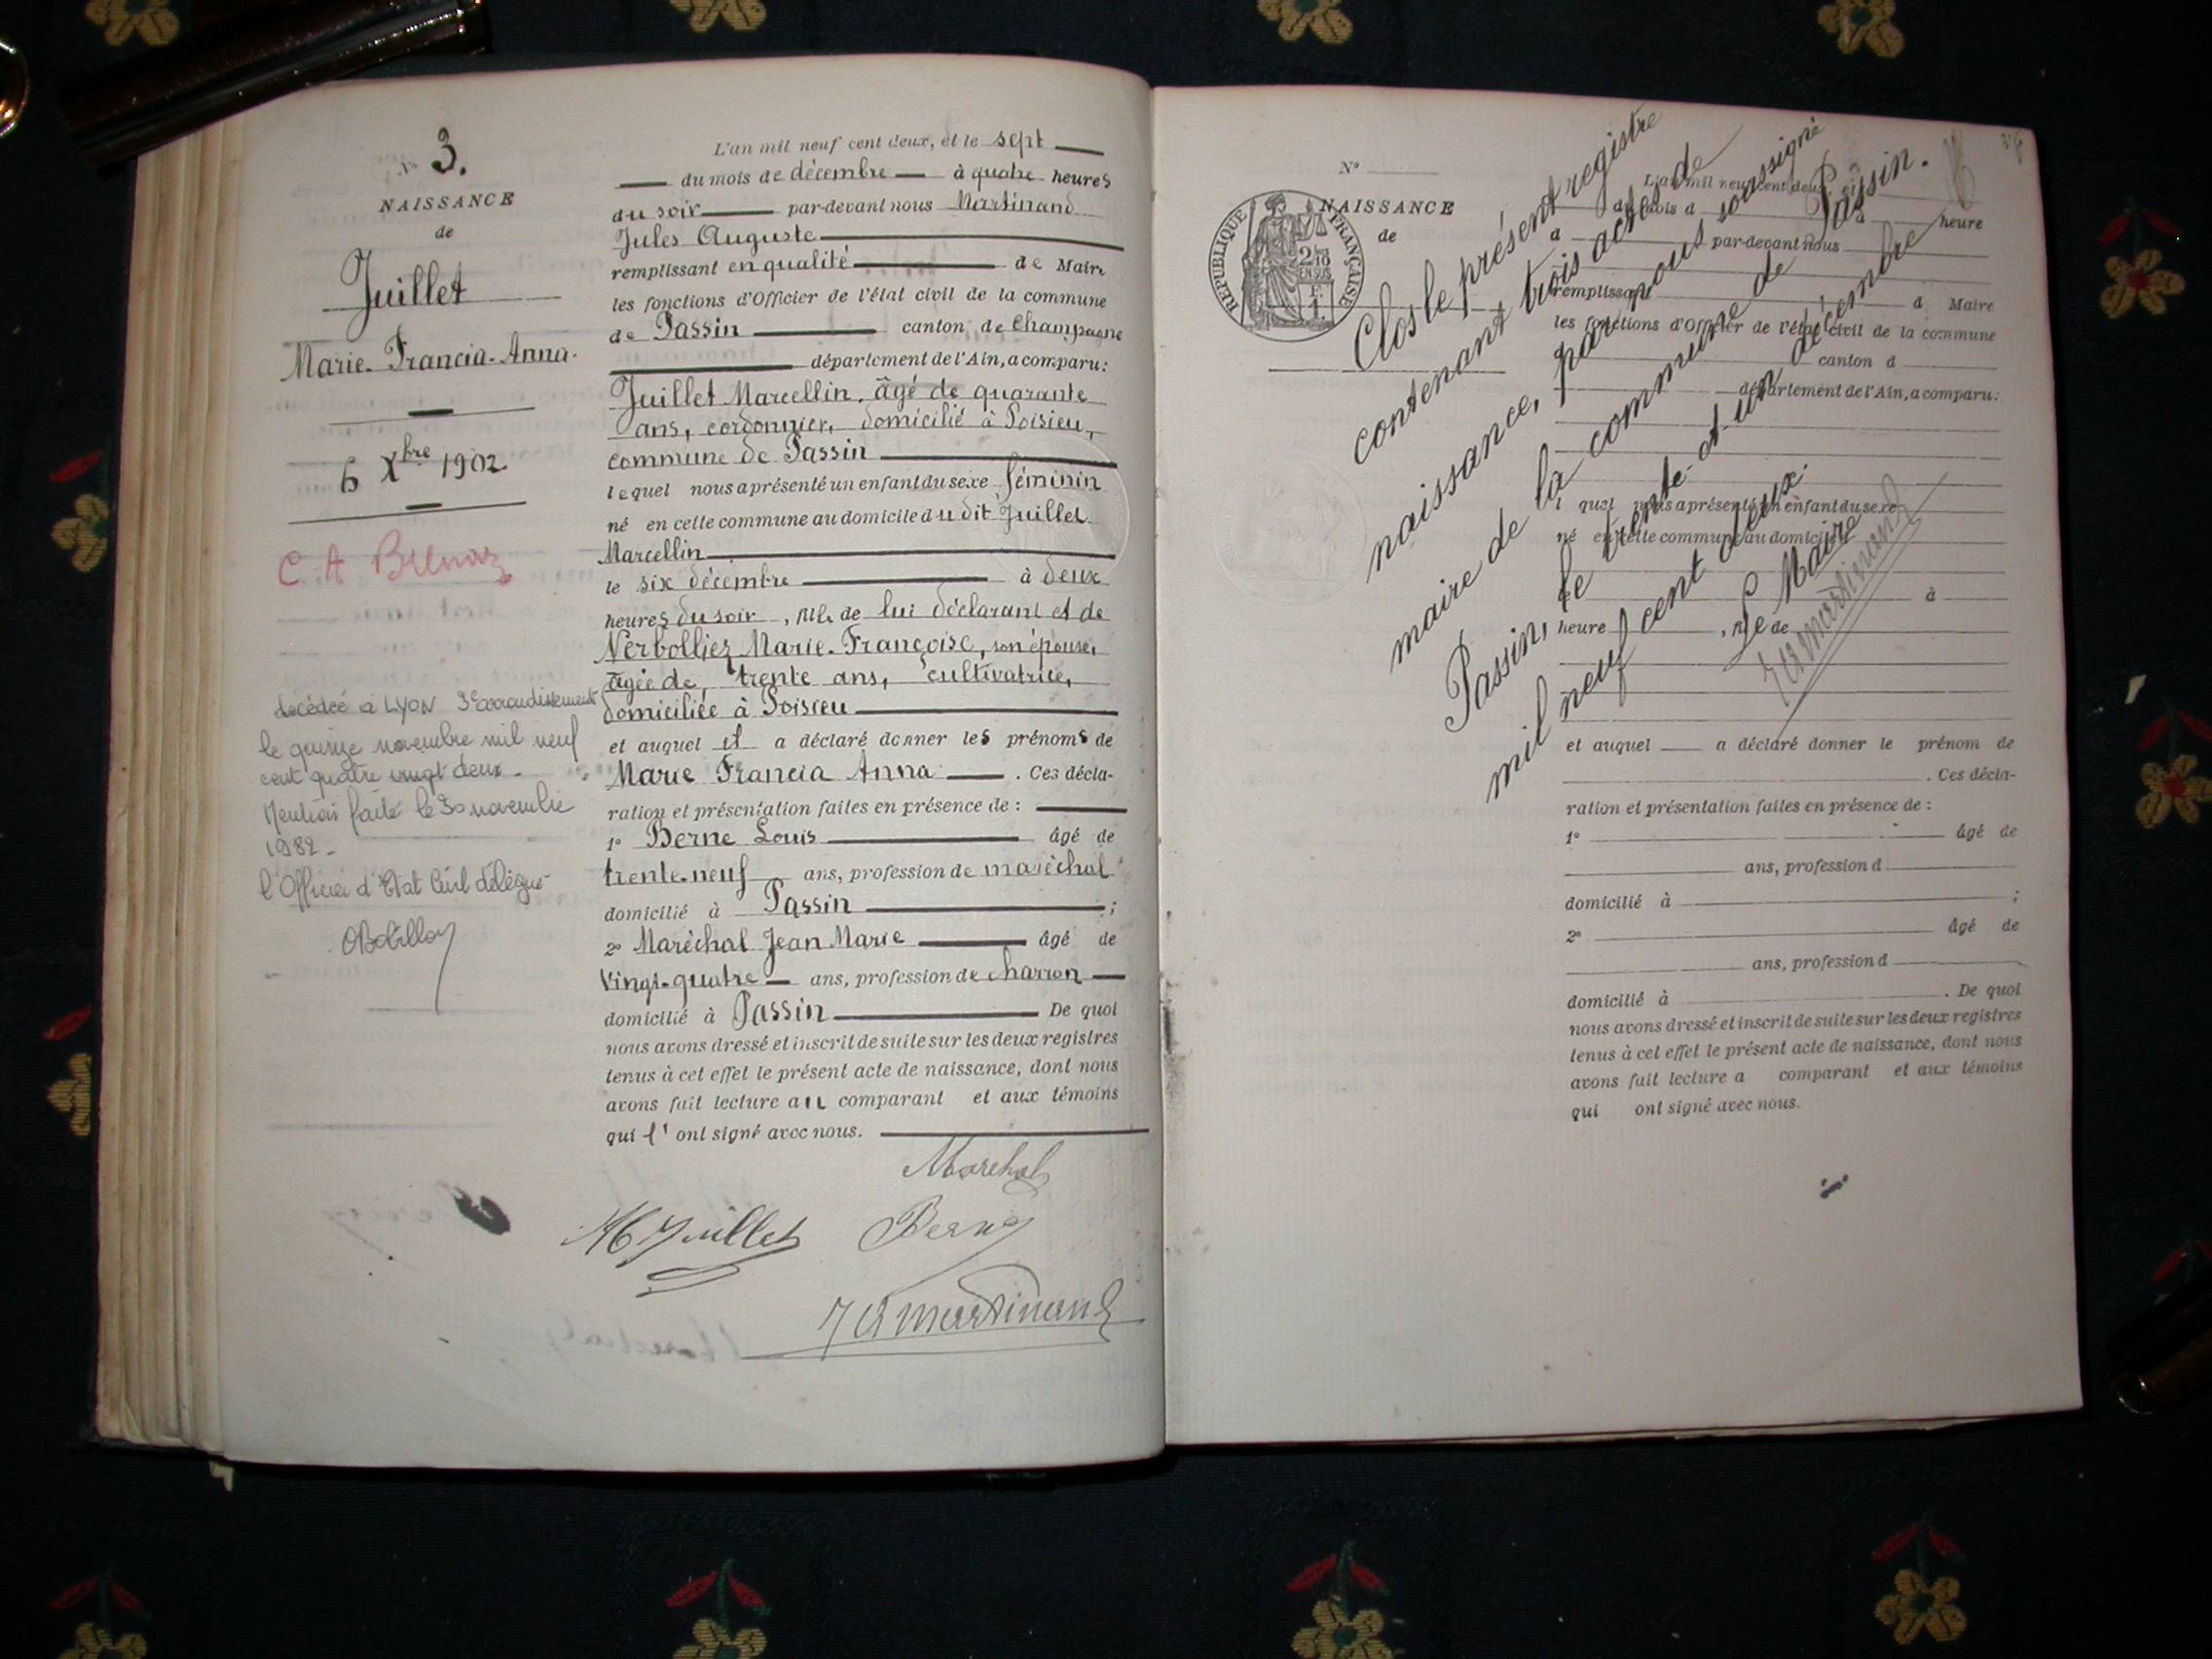 N° 3.
NAISSANCE
de
Juillet
Marie-Francia-Anna.
6 Xbre 1902
C. A
décédée à LYON 3e arrondissement
le quinze novembre mil neuf
cent quatre vingt deux.
Mention faite le 30 novembre
1982.
l'Officier d'Etat Civil délégué
L'an mil neuf cent deux, et le sept
du mois de décembre à quatre heures
du soir par-devant nous Martinand
Jules Auguste
remplissant en qualité de Maire
les fonctions d'Officier de l'état civil de la commune
de Passin canton de Champagne
département de l'Ain, a comparu:
Juillet Marcellin, âgé de quarante
ans, cordonnier, domicilié à Poisieu,
commune de Passin
lequel nous a présenté un enfant du sexe féminin
né en cette commune au domicile dudit Juillet
Marcellin
le six décembre à deux
heures du soir, fille de lui déclarant et de
Nerbolliez Marie-Françoise, son épouse,
âgée de trente ans, cultivatrice,
domiciliée à Poisieu
et auquel il a déclaré donner les prénoms de
Marie Francia Anna. Ces décla-
ration et présentation faites en présence de :
1° Berne Louis âgé de
trente-neuf ans, profession de maréchal
domicilié à Passin ;
2° Maréchal Jean Marie âgé de
vingt-quatre ans, profession de charron
domicilié à Passin De quoi
nous avons dressé et inscrit de suite sur les deux registres
tenus à cet effet le présent acte de naissance, dont nous
avons fait lecture au comparant et aux témoins
qui l'ont signé avec nous.
Marechal
M Juillet Berne
J A Martinand
N°
NAISSANCE
de
REPUBLIQUE FRANÇAISE
2/10
EN SUS
1 F.
L'an mil neuf cent deux, et
du mois d à heure
d par-devant nous
remplissant d Maire
les fonctions d'Officier de l'état civil de la commune
canton d
département de l'Ain, a comparu:
l quel nous a présenté un enfant du sexe
né en cette commune au domicile
le à
heure , fil de
et auquel a déclaré donner le prénom de
. Ces décla-
ration et présentation faites en présence de :
1° âgé de
ans, profession d
domicilié à ;
2° âgé de
ans, profession d
domicilié à . De quoi
nous avons dressé et inscrit de suite sur les deux registres
tenus à cet effet le présent acte de naissance, dont nous
avons fait lecture a comparant et aux témoins
qui ont signé avec nous.
Clos le présent registre
contenant trois actes de
naissance, par nous soussigné
maire de la commune de Passin.
Passin, le trente-et-un décembre
mil neuf cent deux.
Le Maire
J A Martinand